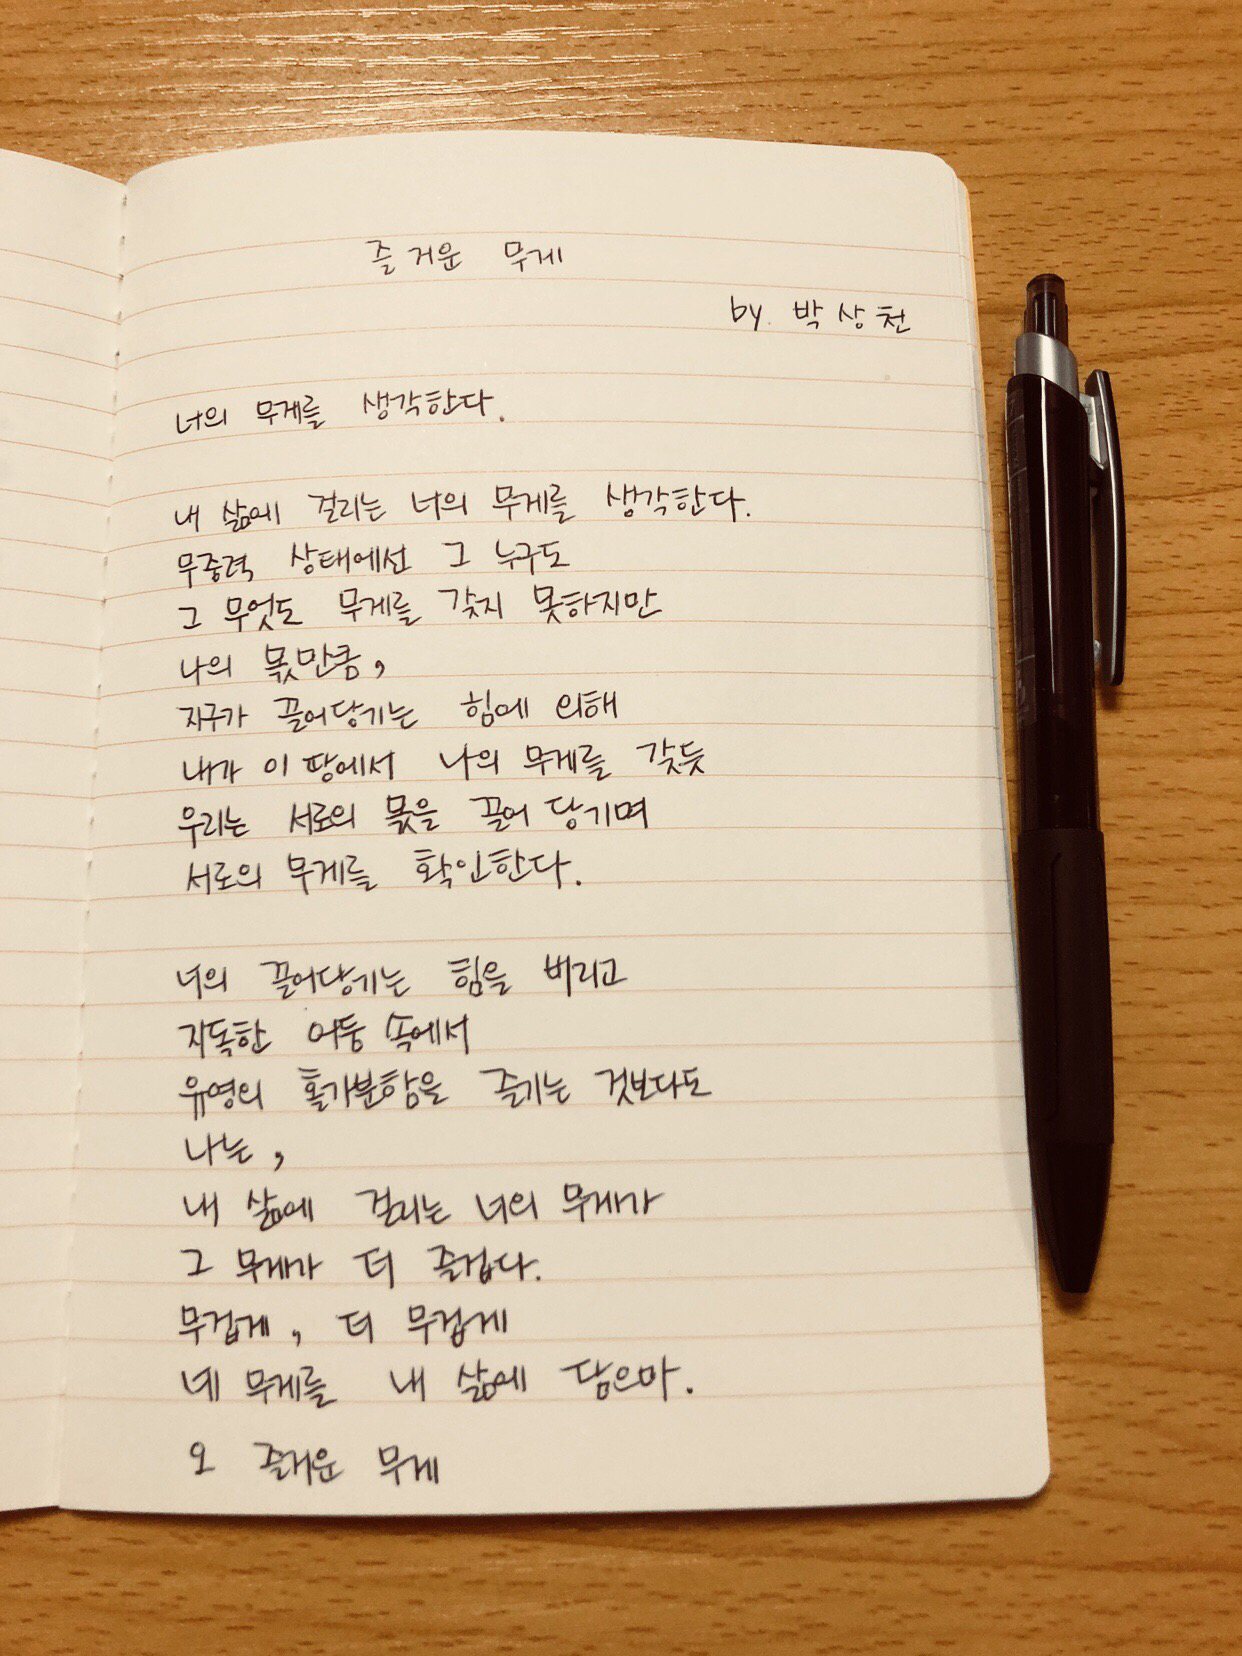 즐거운 무게
by. 박상천
너의 무게를 생각한다.
내 삶에 걸리는 너의 무게를 생각한다.
무중력 상태에선 그 누구도
그 무엇도 무게를 갖지 못하지만
나의 몫만큼,
지구가 끌어당기는 힘에 의해
내가 이 땅에서 나의 무게를 갖듯
우리는 서로의 몫을 끌어 당기며
서로의 무게를 확인한다.
너의 끌어당기는 힘을 버리고
지독한 어둠 속에서
유영의 홀가분함을 즐기는 것보다도
나는,
내 삶에 걸리는 너의 무게가
그 무게가 더 즐겁다.
무겁게, 더 무겁게
네 무게를 내 삶에 담으마.
오 즐거운 무게